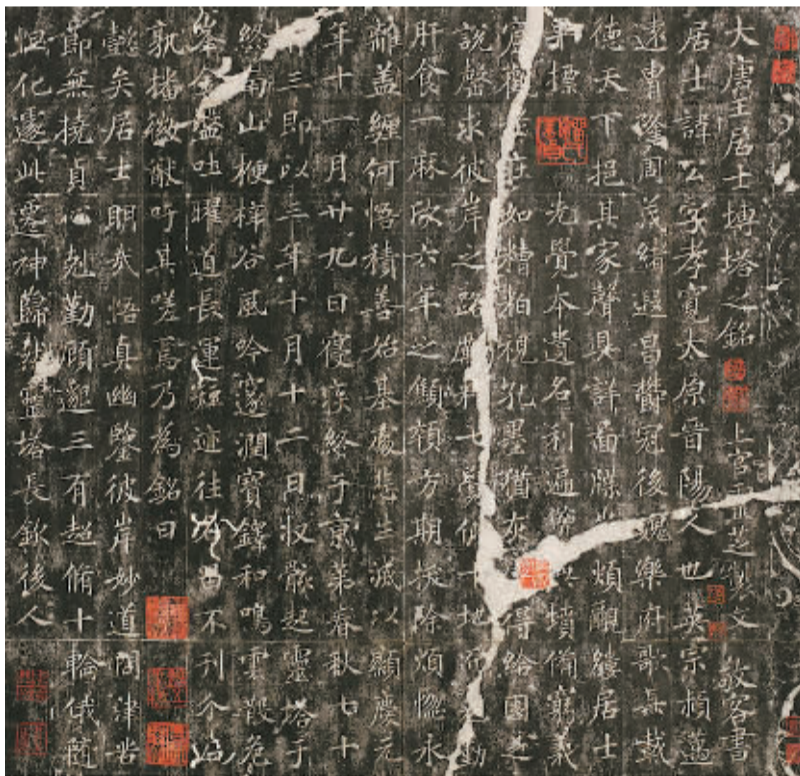 大唐王居士塼塔之銘 上官靈芝製文 敬客書
居士諱公字孝寬太原晉陽人也英宗穎邁
遠冑隆周茂緒遐昌鬱冠後魏樂府歌其載
德天下挹其家聲具詳圖牒煩觀縷居士
早摽先覺本遺名利遍墳備窮義
窟觀在如糟粕視孔墨猶灰得給園之
說罄求彼岸之路七覺仰十地而勤
肝食一麻欣六年之顦顇方期拯除煩惚永
離蓋纏何悟積善始基處悲生滅以顯慶元
年十一月廿九日寢疾終于京第春秋七十
三即以三年十月十二日收骸起靈塔于
終南山楩梓谷風吟邃澗寶鐸和鳴雲散危
峯金盤吐曜道長運短迹往名留不刊介石
孰播徽猷吁其嗟焉乃為銘曰
懿矣居士明哉悟真幽鑒彼岸妙道問津砦
節無撓貞心剋勤顧邈三有超脩十輪俄隨
怛化遽此遷神歸然靈塔長欽後人